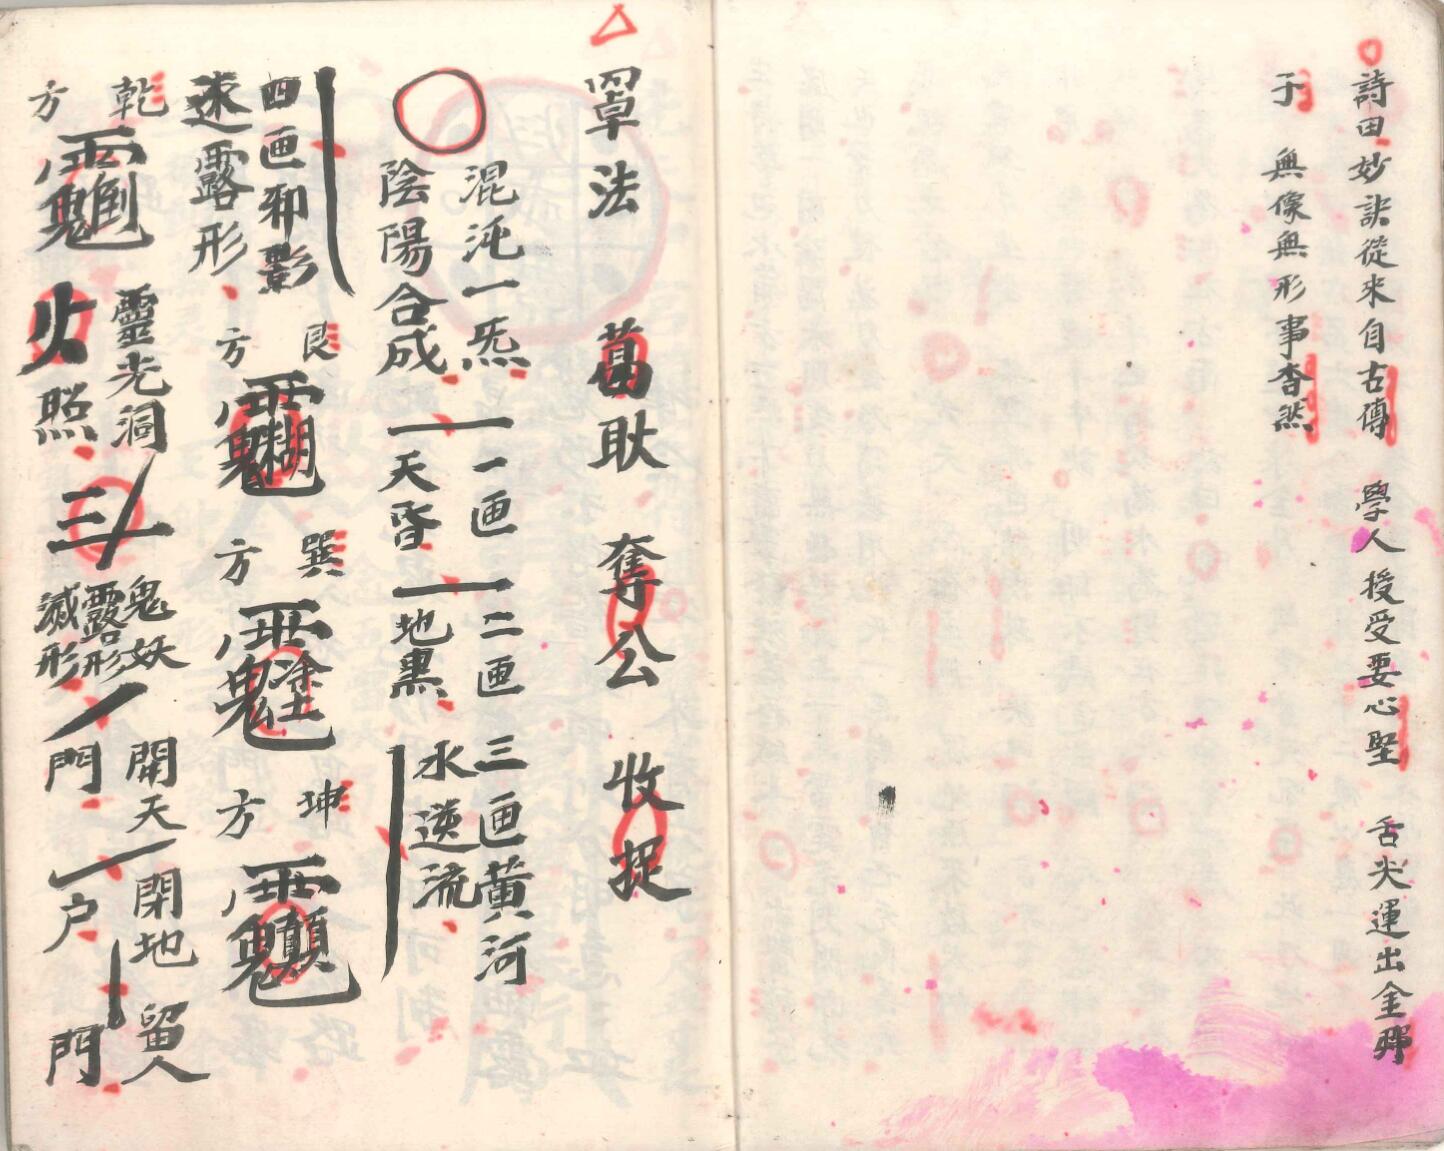 詩田妙訣從來自古傳　學人授受要心堅　舌尖運出金
子　無像無形事杳然
罩法　葛耿　奪公　收捉
混沌一炁
陰陽合成
一画
天昏
二画
地黑
三画黄河
水逆流
四画邪影
速露形
艮
方
巽
方
坤
方
乾
方
靈光洞
火照
鬼妖
露形
滅形
開天
門
閉地
户
留人
門